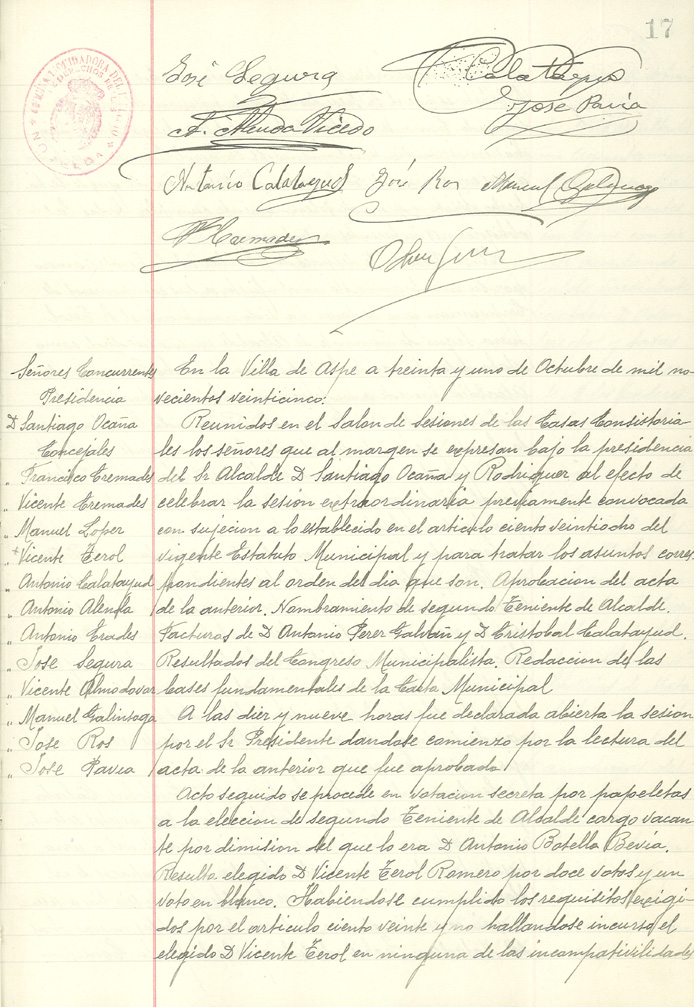 17
José Segura
Calatayud
José Pavía
A. Alenda Vicedo
Antonio Calatayud José Ros Manuel Galinsoga
Señores Concurrentes
Presidencia
D Santiago Ocaña
Concejales
" Francisco Cremades
" Vicente Cremades
" Manuel Loper
" Vicente Cerol
" Antonio Calatayud
" Antonio Alenda
" Antonio Erades
" Jose Segura
" Vicente Almodovar
" Manuel Galinsoga
" Jose Ros
" Jose Pavia
En la Villa de Aspe a treinta y uno de Octubre de mil no-
vecientos veinticinco.
Reunidos en el Salon de Sesiones de las Casas Consistoria-
les los señores que al margen se expresan bajo la presidencia
del Sr Alcalde D Santiago Ocaña y Rodriguer al efecto de
celebrar la sesion extraordinaria previamente convocada
con sujecion a lo establecido en el articulo ciento veintiocho del
vigente Estatuto Municipal y para tratar los asuntos corres
pondientes al orden del dia que son. Aprobacion del acta
de la anterior. Nombramiento de segundo Teniente de Alcalde.
Facturas de D Antonio Perer Galvañ y D Cristobal Calatayud.
Resultados del Congreso Municipalista. Redaccion de las
bases fundamentales de la Carta Municipal
A las dier y nueve horas fue declarada abierta la sesion
por el Sr Presidente dandose comienzo por la lectura del
acta de la anterior que fue aprobada
Acto seguido se procede en votacion secreta por papeletas
a la eleccion de segundo Teniente de Alcalde cargo vacan
te por dimision del que lo era D Antonio Botella Bevia.
Resulta elegido D Vicente Cerol Romero por doce votos y un
voto en blanco. Habiendose cumplido los requisitos exigi-
dos por el articulo ciento veinte y no hallandose incurso el
elegido D Vicente Cerol en ninguna de las incompativilidades